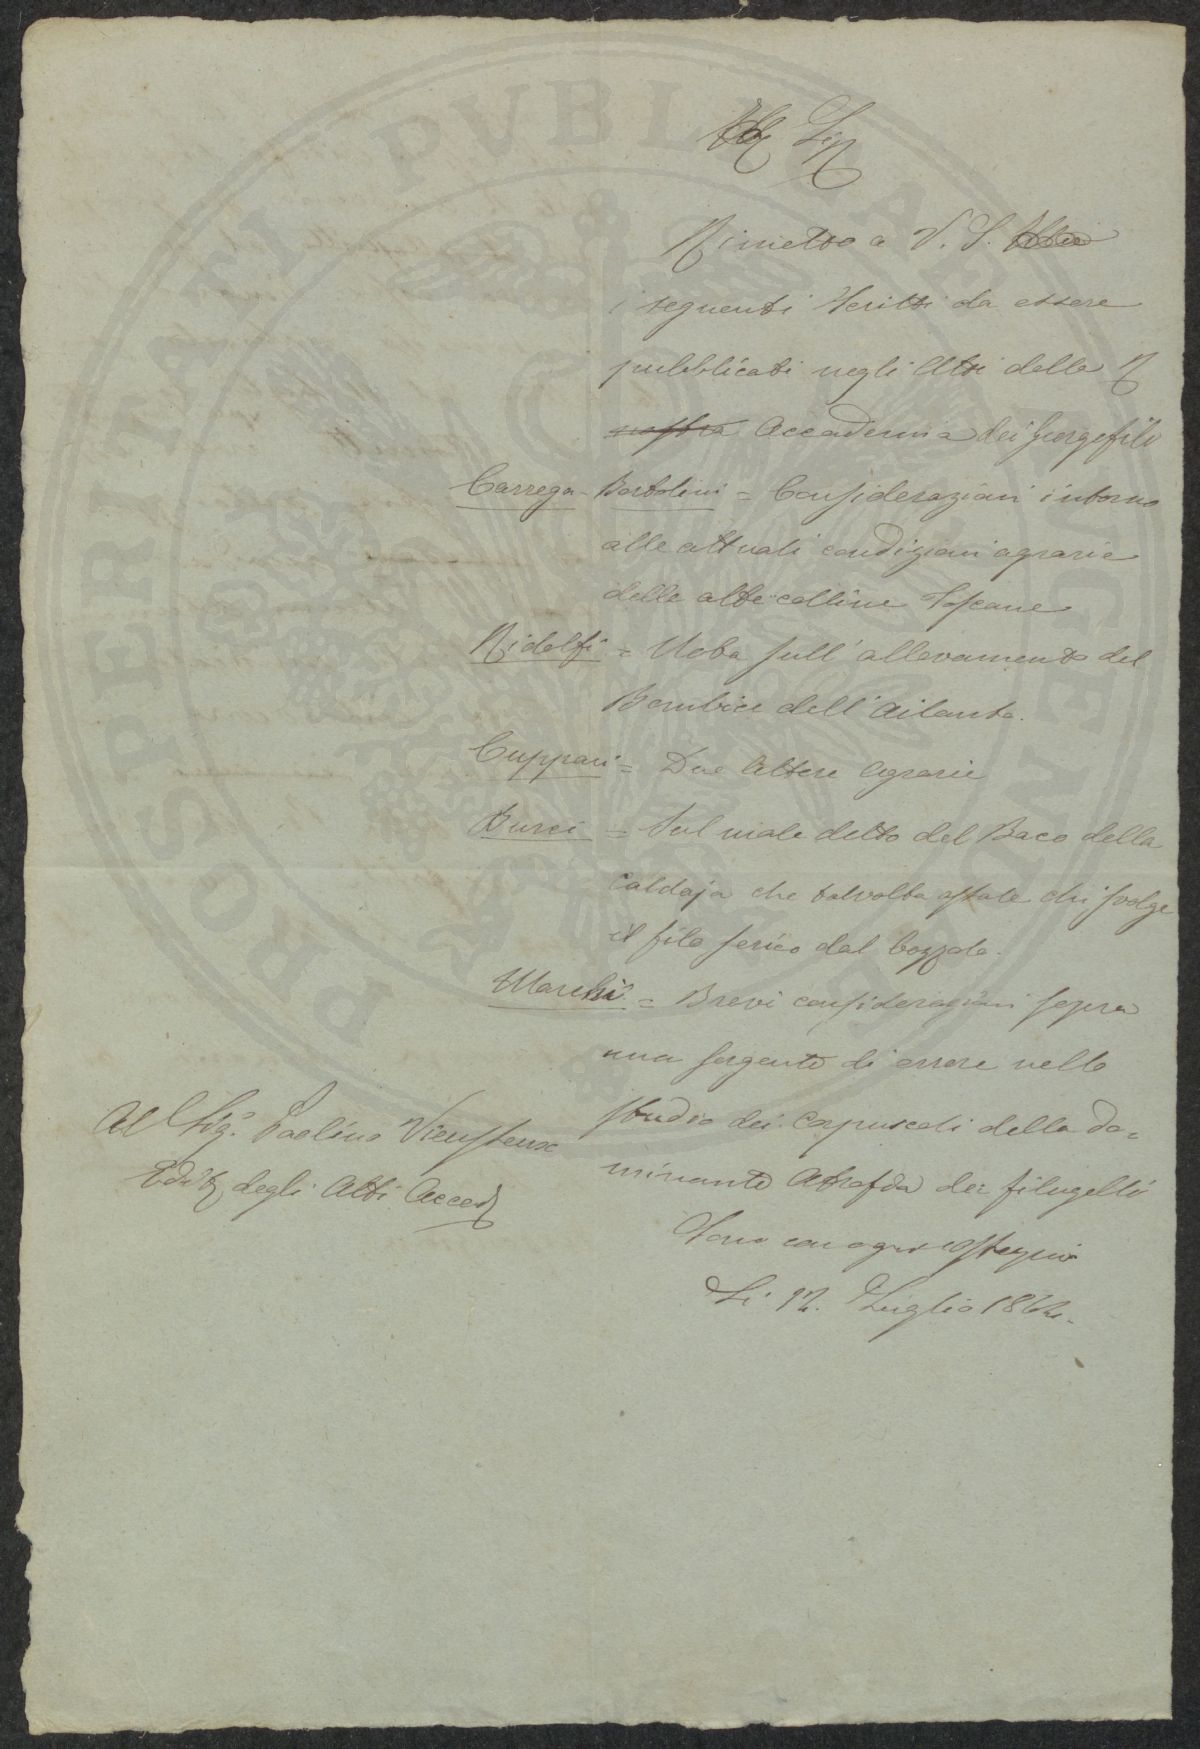 Rimetto a V. S.
i seguenti Scritti da essere
pubblicati negli Atti della R
nostra Accademia dei Georgofili
Carrega - Bertolini = Considerazioni intorno
alle attuali condizioni agrarie
delle alte colline Toscane
Ridolfi = Nota sull' allevamento del
Bombice dell' Ailanto.
Cuppari = Due lettere agrarie
Burci = Sul male detto del Baco della
Caldaja che talvolta assale chi svolge
il filo serico dal bozzolo.
Marchi = Brevi considerazioni sopra
una sorgente di errore nello
studio dei corpuscoli della do=
minante Atrofia dei filugelli
Sono con ogni ossequio
Li 12. Luglio
Al Sig. Paolino Vieusseux
Edit degli Atti Accad
PROSPERITATI PVBLICAE AVGENDAE